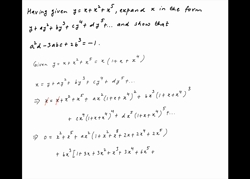 Having given y = x + x² + x⁵, expand x in the form
y + ay² + by³ + cy⁴ + dy⁵ ... and show that
a²d - 3abc + 2b³ = -1.
Given y = x + x² + x⁵ = x(1 + x + x⁴)
x = y + ay² + by³ + cy⁴ + dy⁵ ...
⇒ x = x + x² + x⁵ + ax²(1+x+x⁴)² + bx³(1+x+x⁴)³
+ cx⁴(1+x+x⁴)⁴ + dx⁵(1+x+x⁴)⁵ ...
⇒ 0 = x² + x⁵ + ax²(1 + x² + x⁸ + 2x + 2x⁵ + 2x⁴)
+ bx³[1 + 3x + 3x² + x³ + 3x⁴ + 6x⁵ +